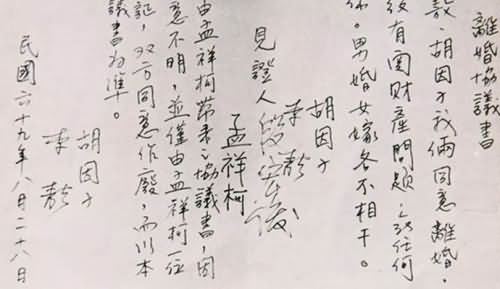 離婚協議書
敖、胡因子我倆同意離婚。
有関財產問題之 任何
係。男婚女嫁各不相干。
胡因子
李敖
見證人段宏俊
孟祥柯
由孟祥柯帶來之協議書,因
意不明,並僅由孟祥柯一位
証,双方同意作廢,而以本
議書為準。
胡因子
李敖
民國六十九年八月二十八日